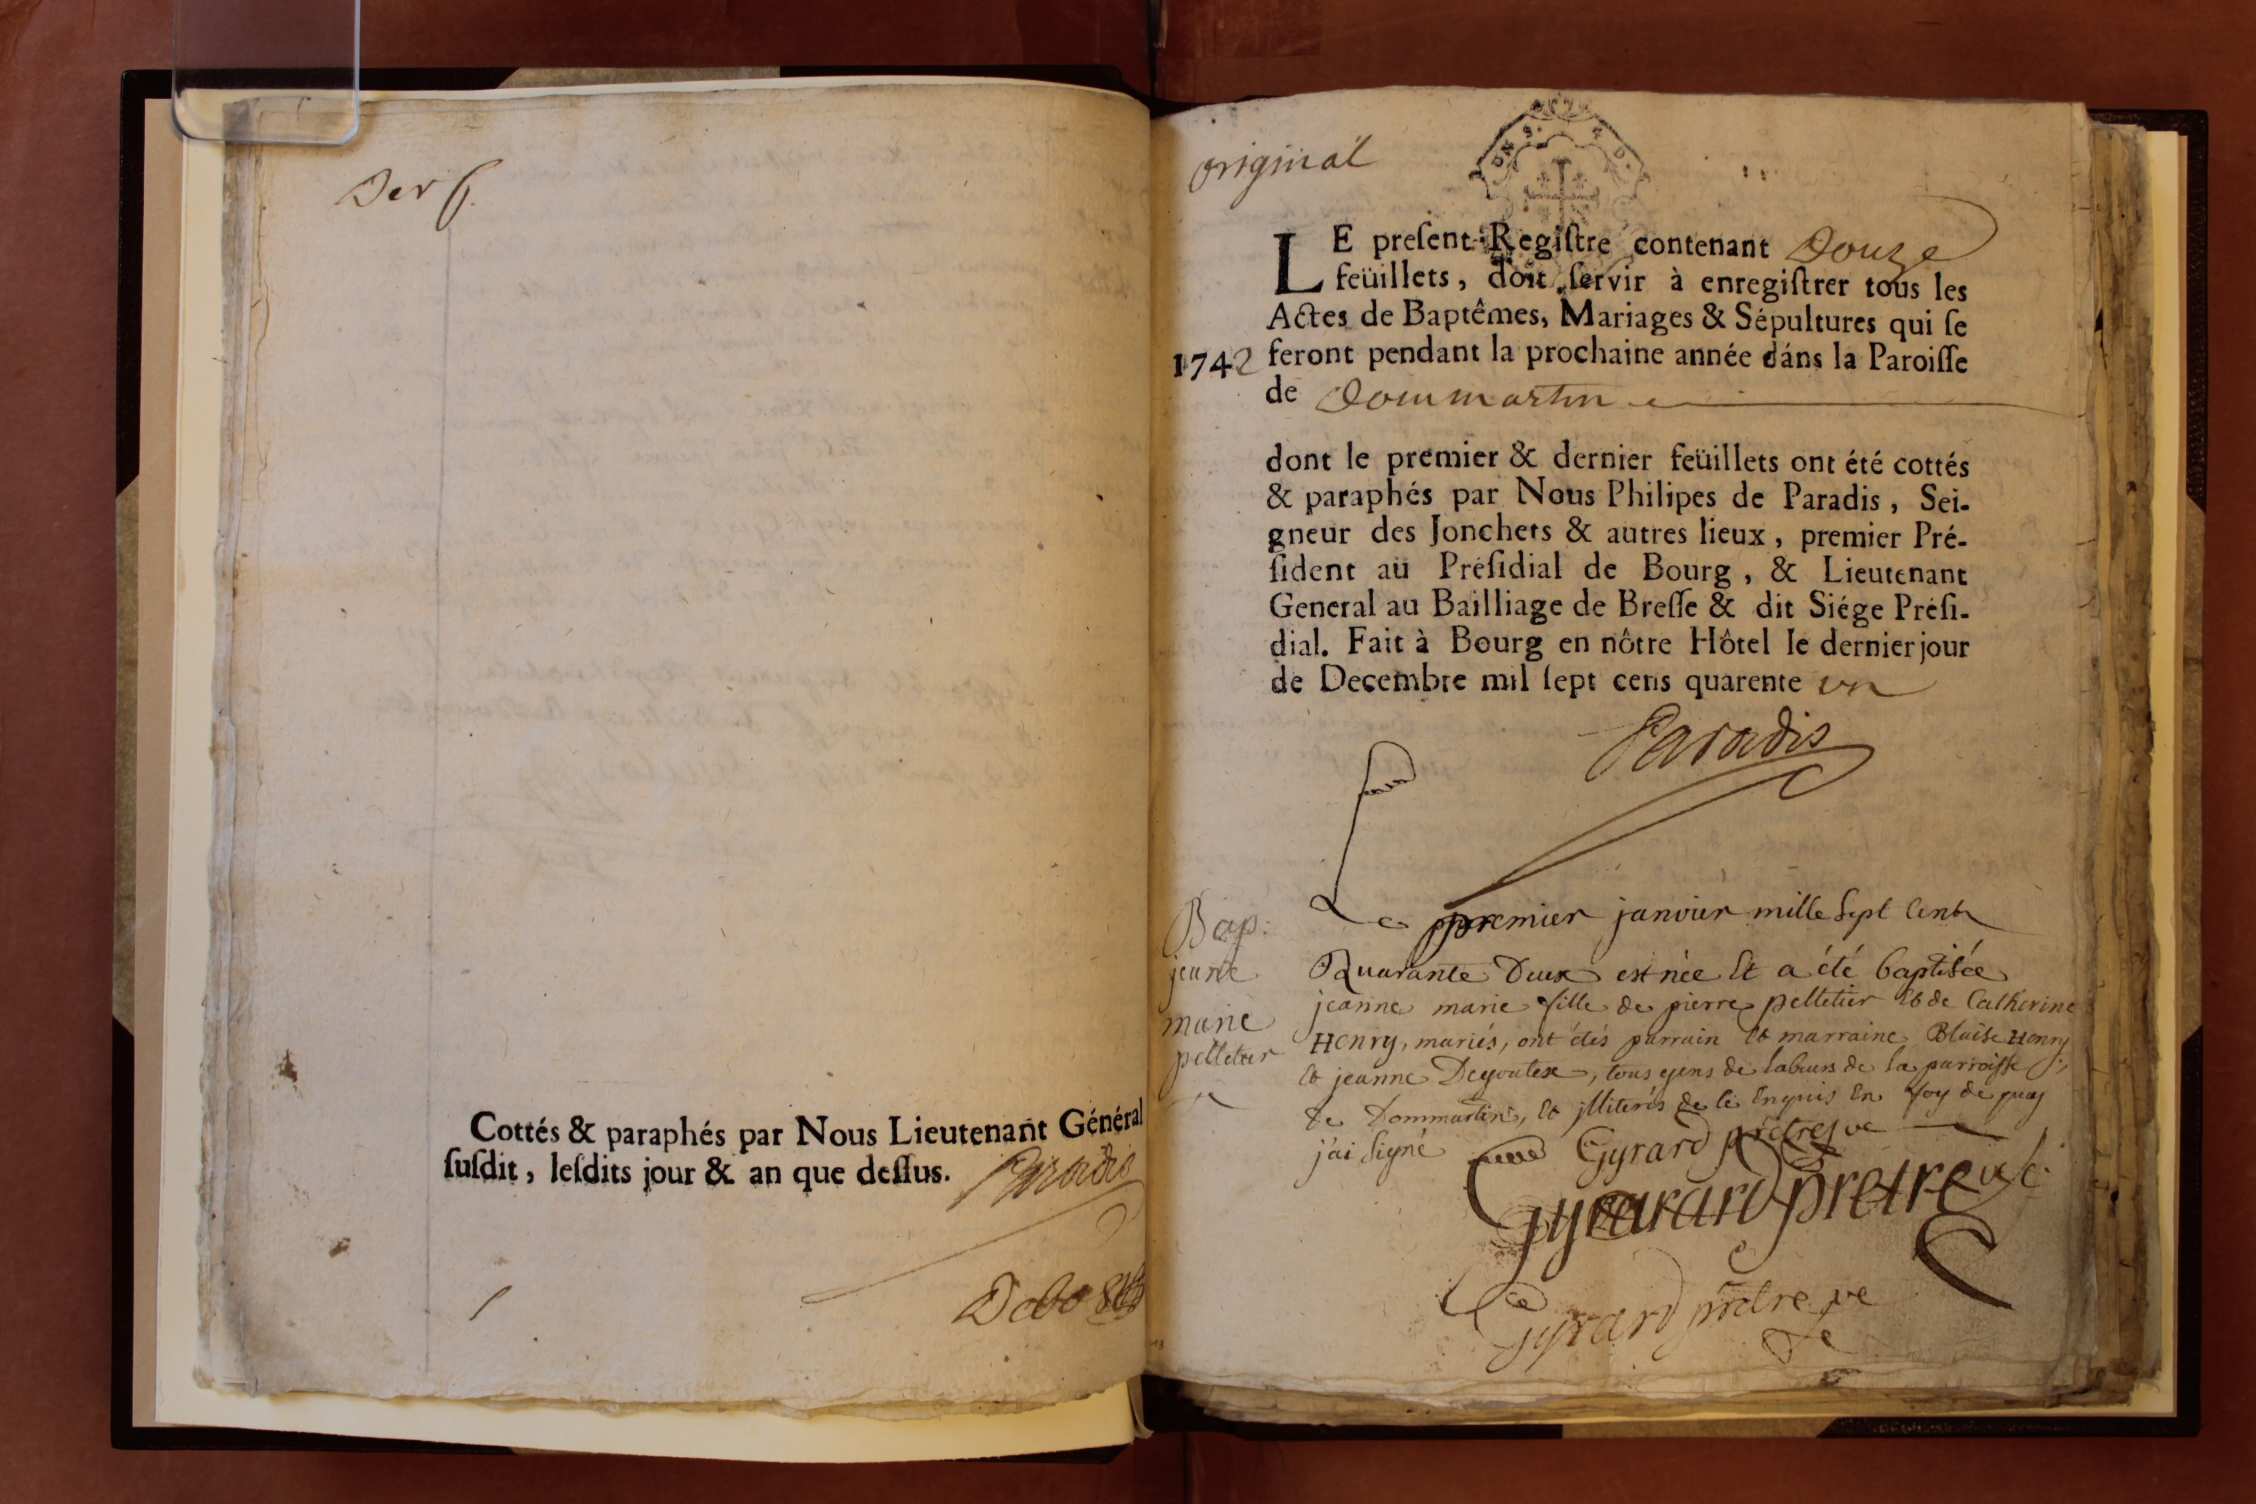 Der f.
Cottés & paraphés par Nous Lieutenant Général
ſuſdit, leſdits jour & an que deſſus. Paradis
original
LE preſent Regiſtre contenant Douze
feüillets, doit ſervir à enregiſtrer tous les
Actes de Baptêmes, Mariages & Sépultures qui ſe
1742 feront pendant la prochaine année dáns la Paroiſſe
de Dommartin
dont le premier & dernier feüillets ont été cottés
& paraphés par Nous Philipes de Paradis, Sei-
gneur des Jonchets & autres lieux, premier Pré-
ſident au Préſidial de Bourg, & Lieutenant
General au Bailliage de Breſſe & dit Siége Préſi-
dial. Fait à Bourg en nôtre Hôtel le dernier jour
de Decembre mil ſept cens quarente un
Paradis
Bap:
jeanne
marie
pelletier
Le premier janvier mille Sept Cent
Quarante Deux est née Et a été baptisée
jeanne marie fille de pierre pelletier Et de Catherine
Henry, mariés, ont étés parrain et marraine Blaise Henry
et jeanne Degoutex, tous gens de labeurs de la parroisse
de Dommartin, Et jlliterés de ce Enquis En foy de quoy
j'ai Signé Gyrard prêtre
Gyrard pretre
Gyrard prêtre